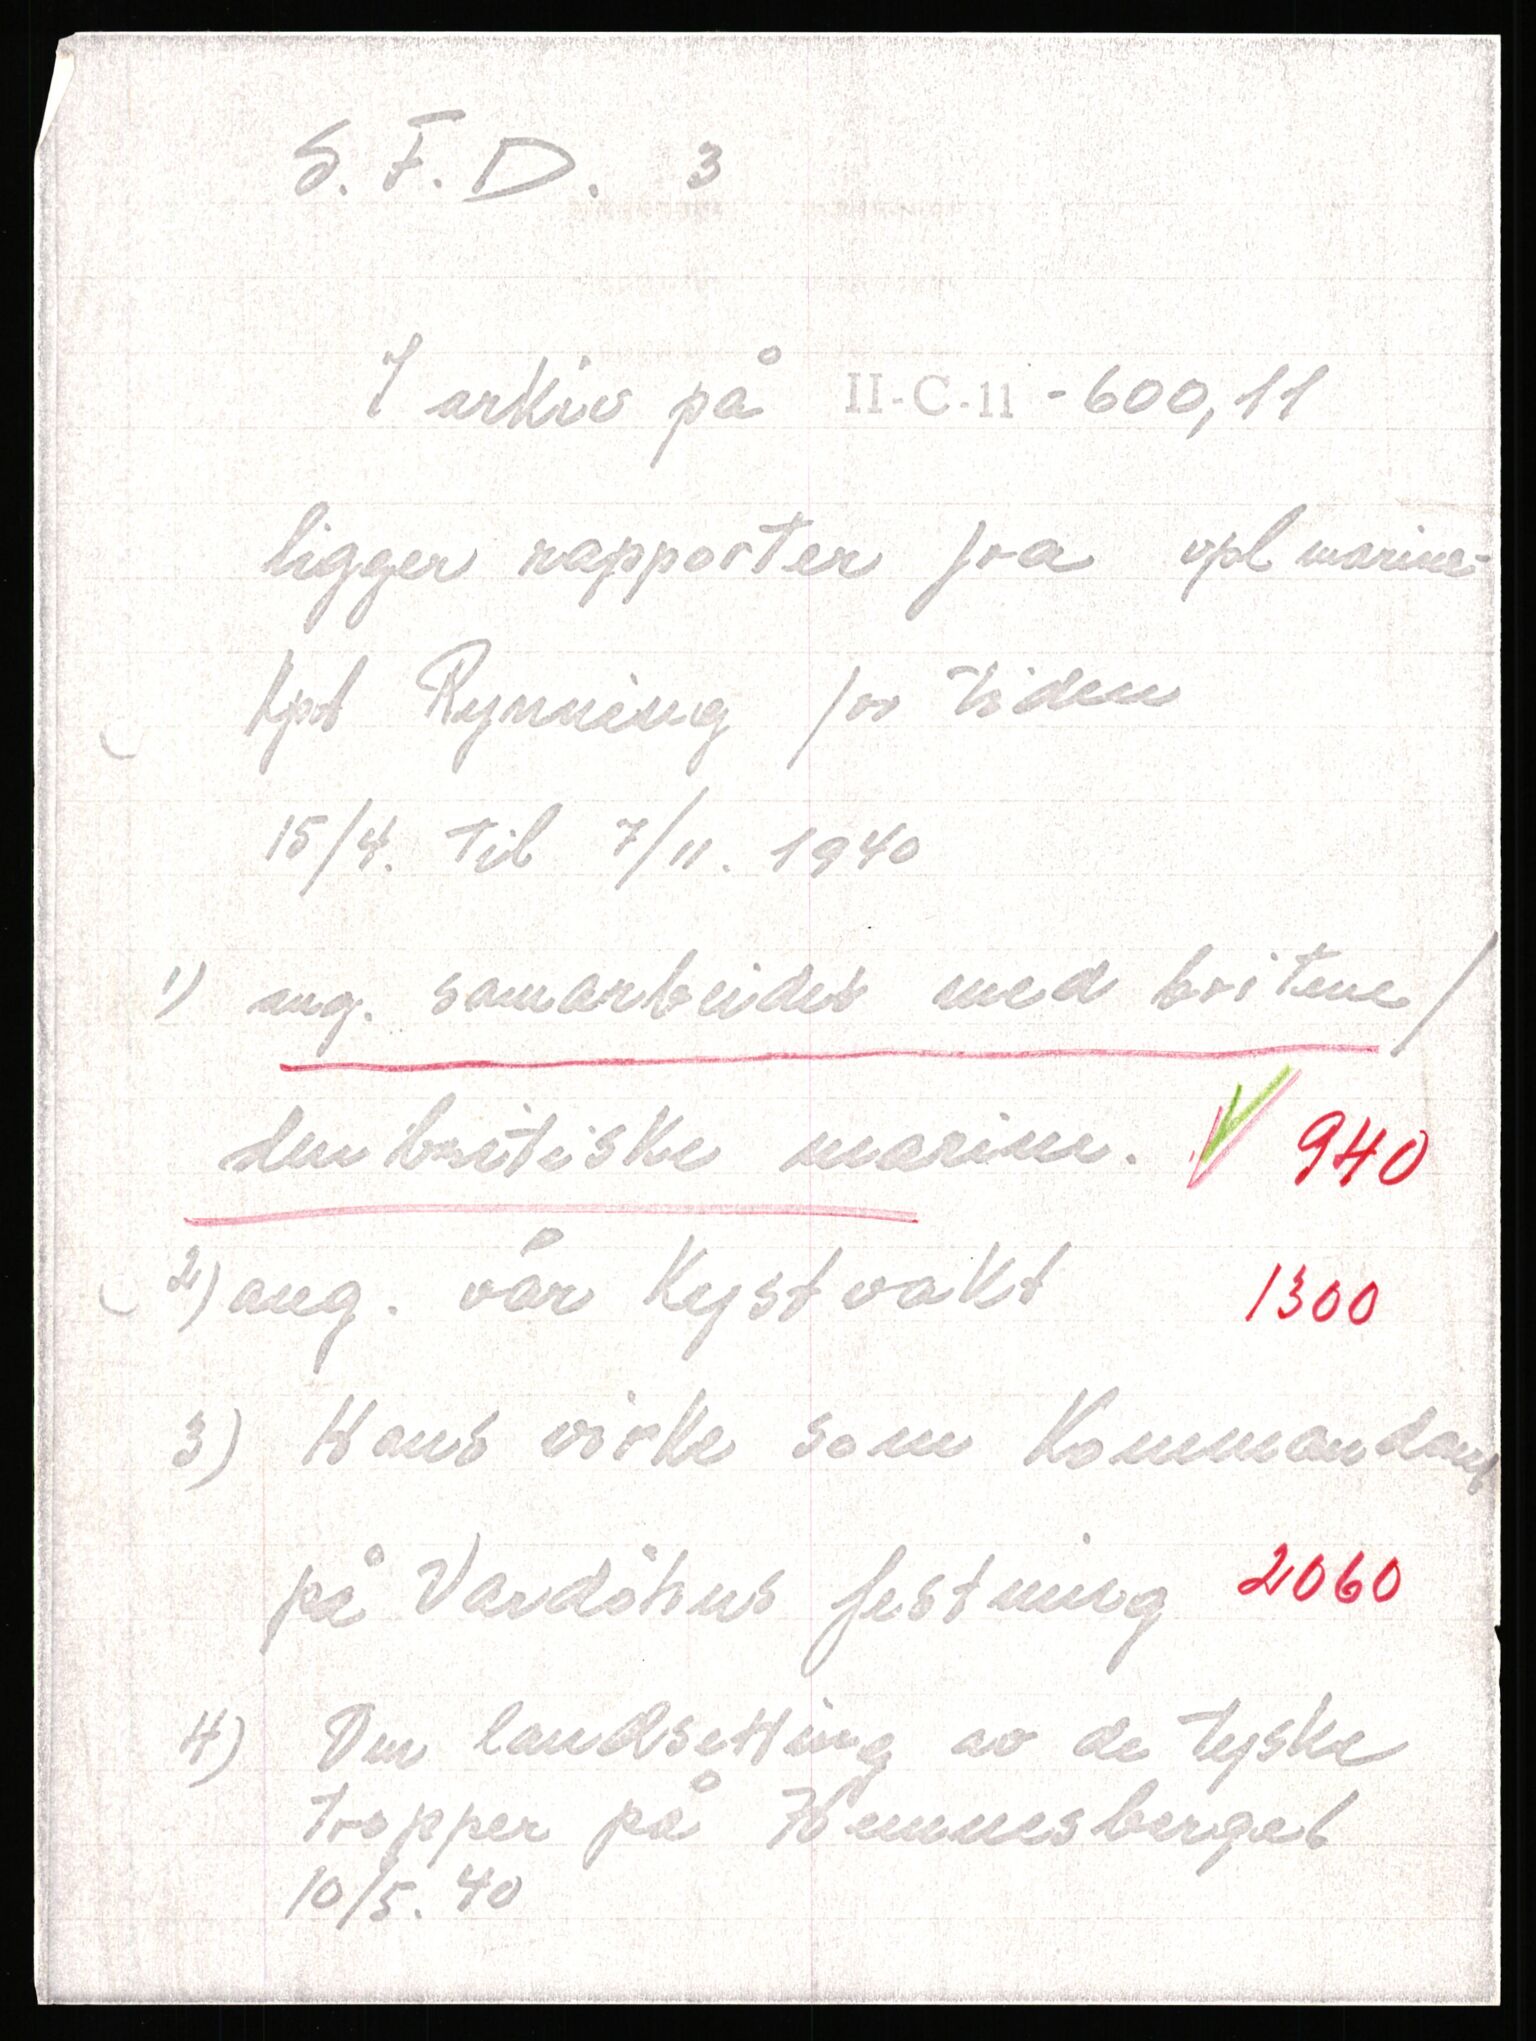 S. F. D. 3
I arkiv på II-C-11 - 600,11
ligger rapporter fra vpl marine-
kpt Rynning for tiden
15/4. til 7/11. 1940
1) ang. samarbeidet med britene/
den britiske marine. 940
2) ang. vår Kystvakt 1300
3) Hans virke som Kommandant
på Vardöhus festning 2060
4) Om landsetting av de tyske
tropper på Hemnesberget
10/5. 40